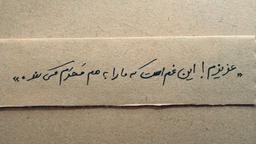 «عزیزم! این غم است که ما را به هم مَحرَم می‌کند.»